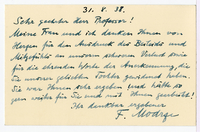 31. 8. 38.
Sehr geehrter Herr Professor!
Meine Frau und ich danken Ihnen von
Herzen für den Ausdruck des Beileids und
Mitgefühls an unserem schweren Verlust sowie
für die ehrenden Worte der Anerkennung, die
Sie unserer geliebten Tochter gewidmet haben.
Sie war Ihnen sehr ergeben und hätte so
gern weiter für Sie und mit Ihnen gearbeitet!
Ihr dankbar ergebener
F.